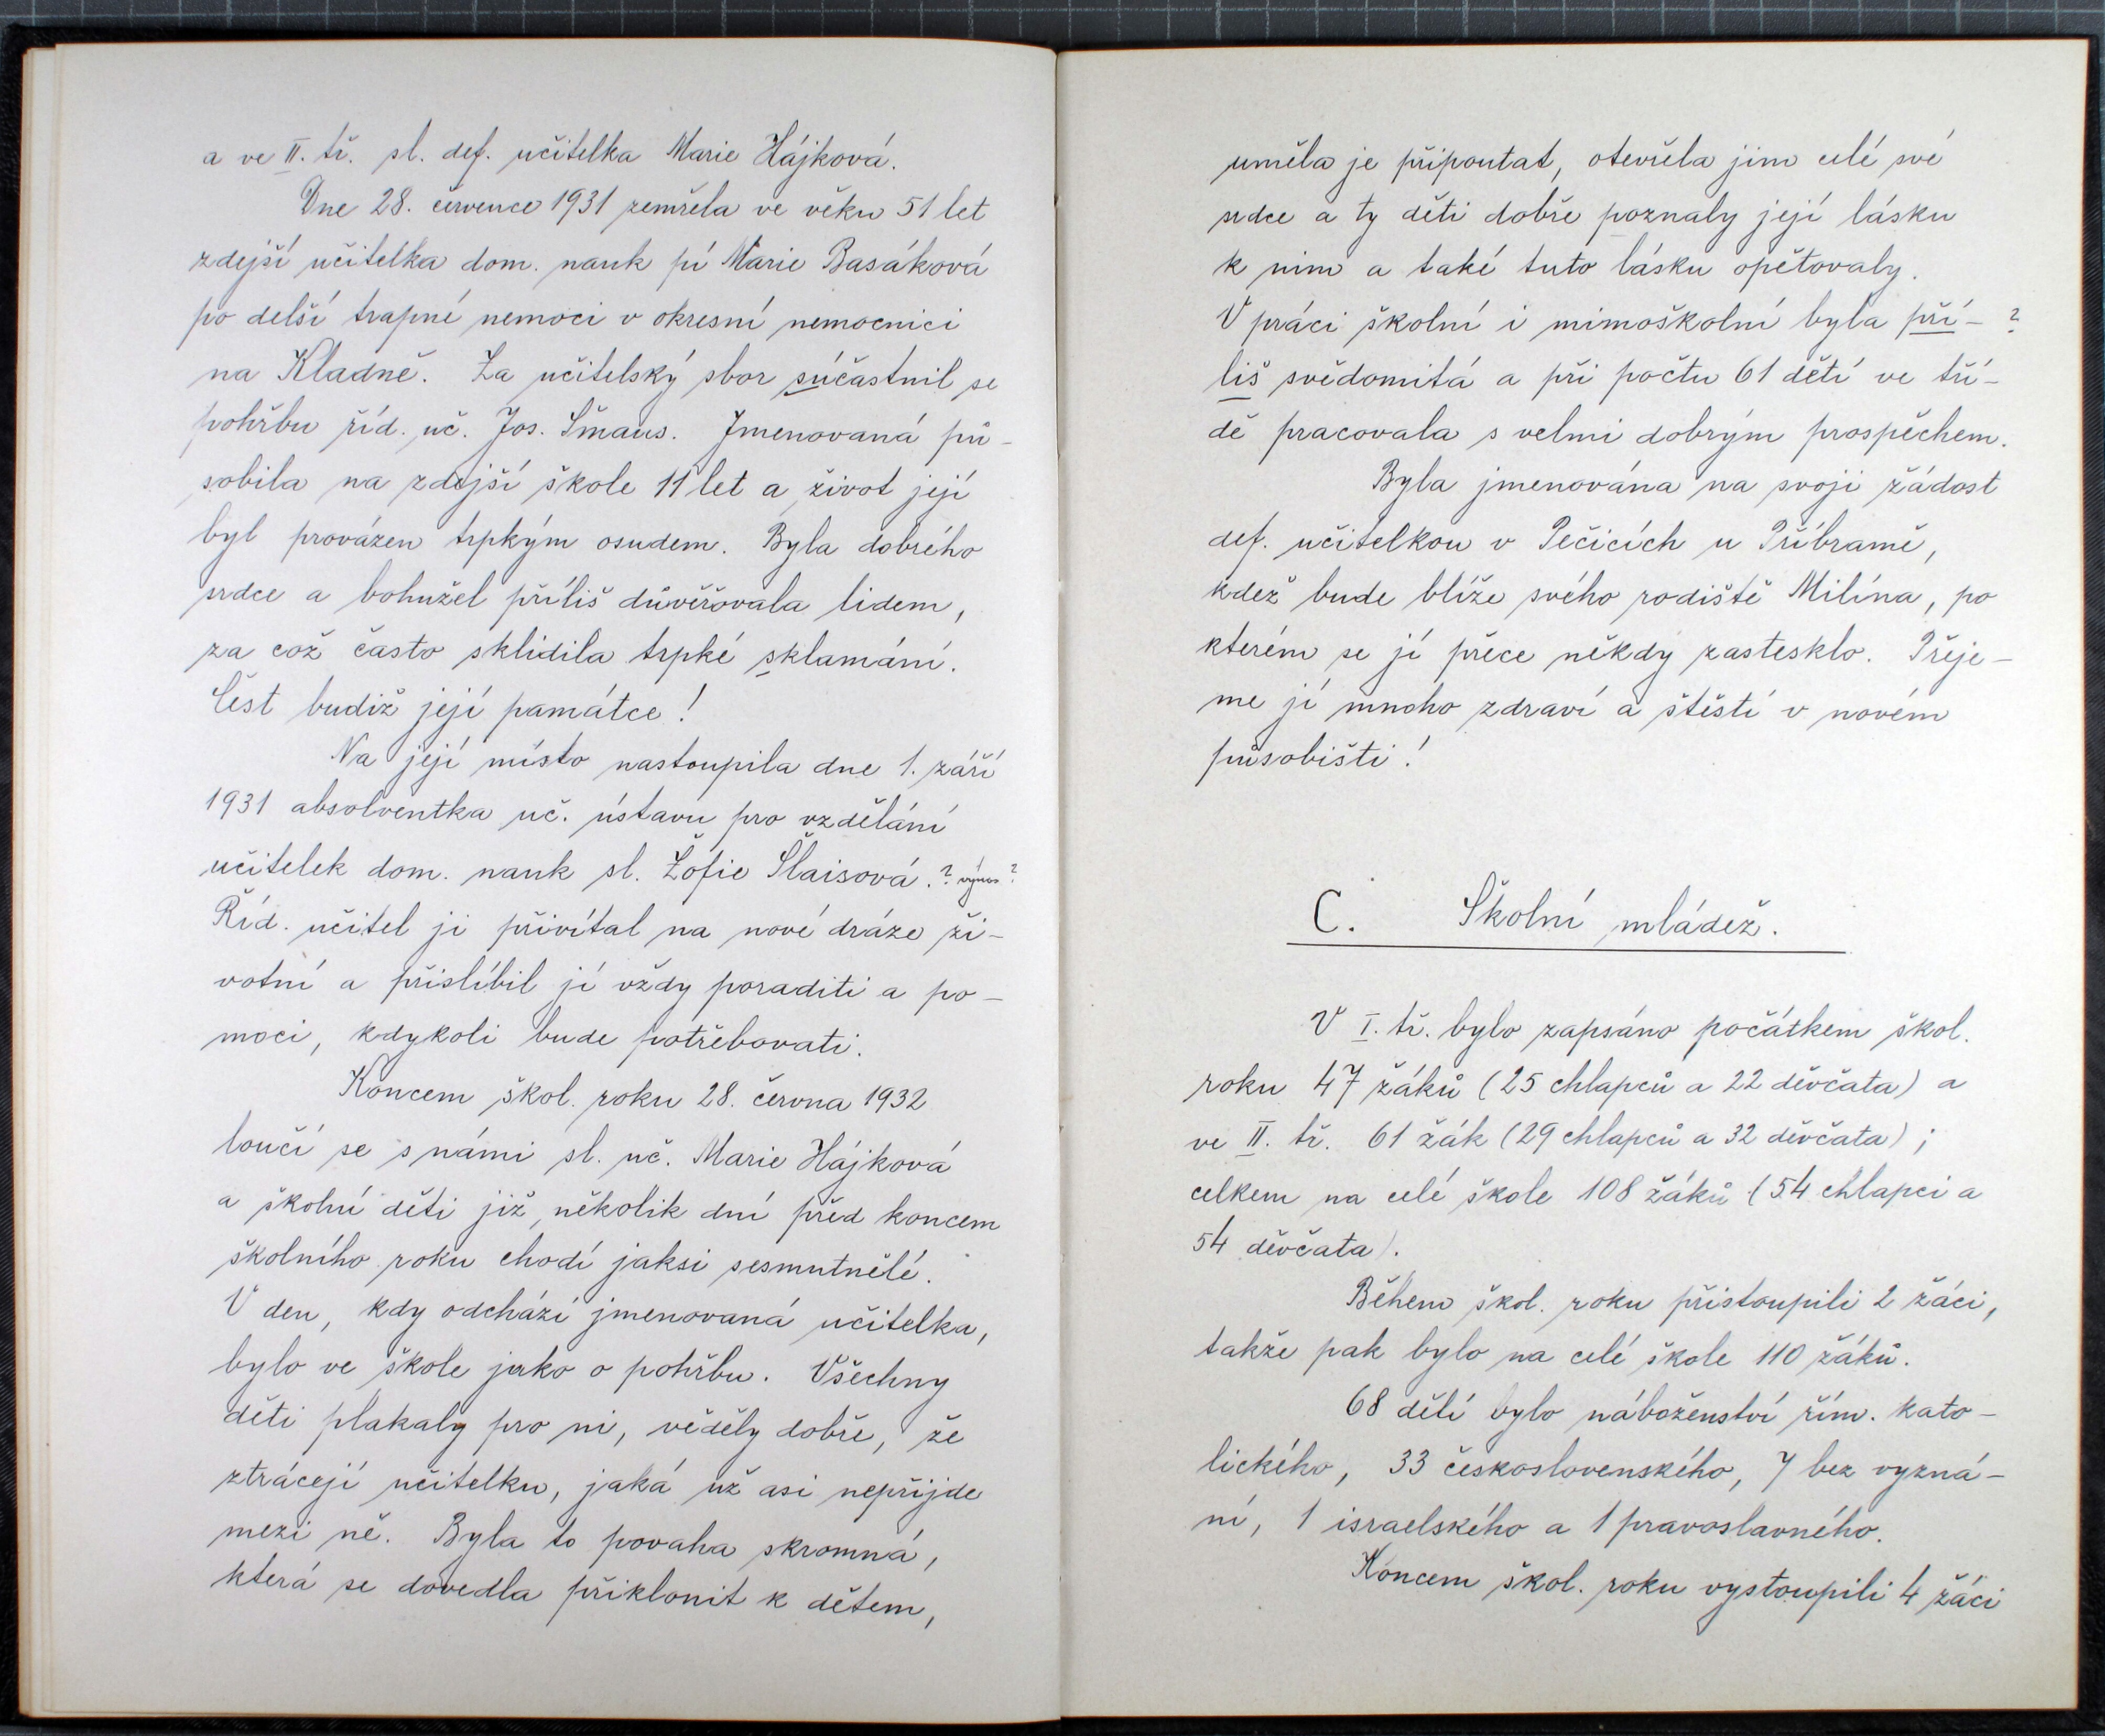 a ve II. tř. sl. def. učitelka Marie Hájková.
Dne 28. července 1931 zemřela ve věku 51 let
zdejší učitelka dom. nauk pí Marie Basáková
po delší trapné nemoci v okresní nemocnici
na Kladně. Za učitelský sbor súčastnil se
pohřbu říd. uč. Jos. Šmaus. Jmenovaná pů-
sobila na zdejší škole 11 let a život její
byl provázen trpkým osudem. Byla dobrého
srdce a bohužel příliš důvěřovala lidem,
za což často sklidila trpké sklamání.
Čest budiž její památce!
Na její místo nastoupila dne 1. září
1931 absolventka uč. ústavu pro vzdělání
učitelek dom. nauk sl. Žofie Šlaisová. ? výnos ?
Říd. učitel ji přivítal na nové dráze ži-
votní a přislíbil jí vždy poraditi a po-
moci, kdykoli bude potřebovati.
Koncem škol. roku 28. června 1932
loučí se s námi sl. uč. Marie Hájková
a školní děti již několik dní před koncem
školního roku chodí jaksi sesmutnělé.
V den, kdy odchází jmenovaná učitelka,
bylo ve škole jako o pohřbu. Všechny
děti plakaly pro ni, věděly dobře, že
ztrácejí učitelku, jaká už asi nepřijde
mezi ně. Byla to povaha skromná,
která se dovedla přiklonit k dětem,
uměla je připoutat, otevřela jim celé své
srdce a ty děti dobře poznaly její lásku
k nim a také tuto lásku opětovaly.
V práci školní i mimoškolní byla pří- ?
liš svědomitá a při počtu 61 dětí ve tří-
dě pracovala s velmi dobrým prospěchem.
Byla jmenována na svoji žádost
def. učitelkou v Pečicích u Příbramě,
kdež bude blíže svého rodiště Milína, po
kterém se jí přece někdy zastesklo. Přeje-
me jí mnoho zdraví a štěstí v novém
působišti!
C. Školní mládež.
V I. tř. bylo zapsáno počátkem škol.
roku 47 žáků (25 chlapců a 22 děvčata) a
ve II. tř. 61 žák (29 chlapců a 32 děvčata);
celkem na celé škole 108 žáků (54 chlapci a
54 děvčata).
Během škol. roku přistoupili 2 žáci,
takže pak bylo na celé škole 110 žáků.
68 dětí bylo náboženství řím. kato-
lického, 33 československého, 7 bez vyzná-
ní, 1 israelského a 1 pravoslavného.
Koncem škol. roku vystoupili 4 žáci